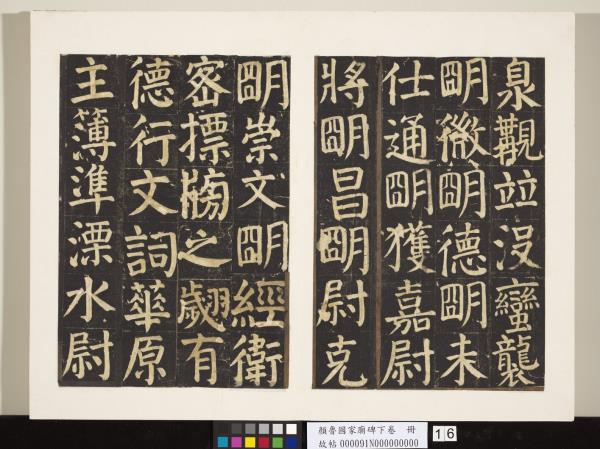 泉觀竝沒蠻襲
明微明德明未
仕通明獲嘉尉
將明昌明尉克
明崇文明經衛
密摽牓之翽有
德行文詞華原
主簿準溧水尉
顏魯國家廟碑下卷 冊
故帖 000091N000000000
16